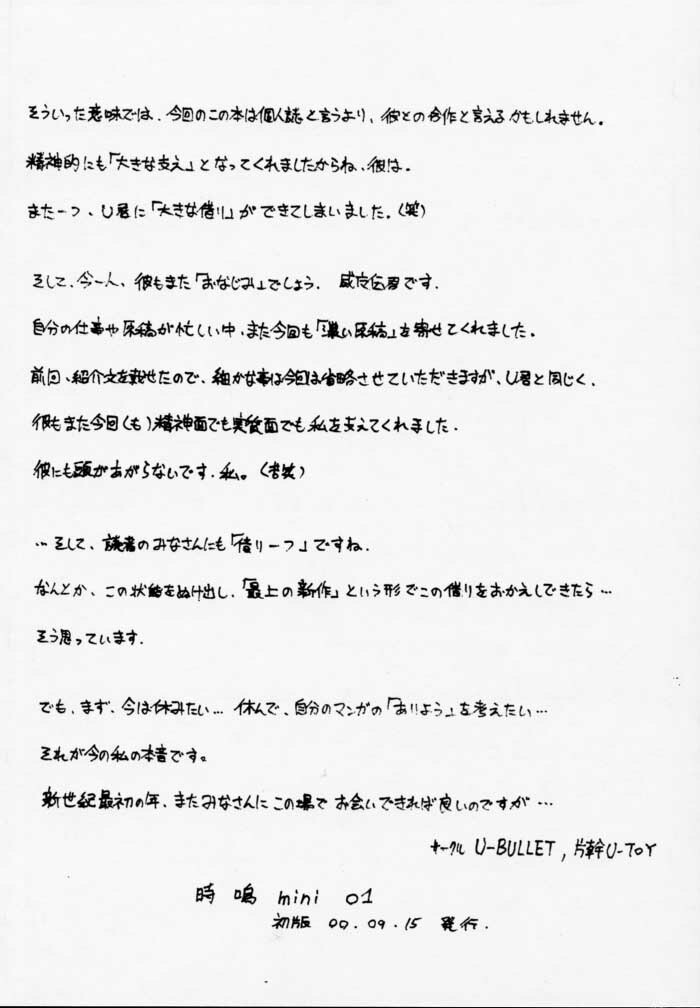 そういった意味では、今回のこの本は個人誌と言うより、彼との合作と言えるかもしれません。
精神的にも「大きな支え」となってくれましたからね、彼は。
また一つ、U君に「大きな借り」ができてしまいました。(笑)
そして、今一人、彼もまた「おなじみ」でしょう、 君です。
自分の仕事や原稿が忙しい中、また今回も「濃い原稿」を寄せてくれました。
前回、紹介文を載せたので、細かな事は今回は省略させていただきますが、U君と同じく、
彼もまた今回(も)精神面でも実質面でも私を支えてくれました。
彼にも頭があがらないです、私。(苦笑)
…そして、読者のみなさんにも「借り一つ」ですね。
なんとか、この状態をぬけ出し、「最上の新作」という形でこの借りをおかえしできたら…
そう思っています。
でも、まず、今は休みたい… 休んで、自分のマンガの「ありよう」を考えたい…
それが今の私の本音です。
新世紀最初の年、またみなさんにこの場でお会いできれば良いのですが…
サークル U-BULLET, 片幹U-TOY
時鳴 mini 01
初版 00.09.15 発行.